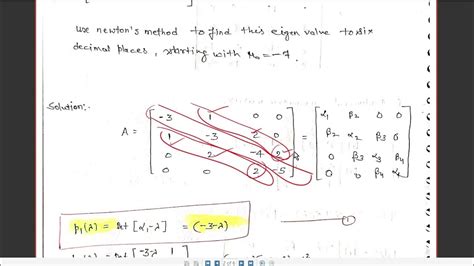 use newton's method to find this eigen value to six
decimal places, starting with μ₀ = -7.
Solution:-
A = [ -3 1 0 0 ] = [ α₁ β₂ 0 0 ]
[ 1 -3 2 0 ] [ β₂ α₂ β₃ 0 ]
[ 0 2 -4 2 ] [ 0 β₃ α₃ β₄ ]
[ 0 0 2 -5 ] [ 0 0 β₄ α₄ ]
①
P₁(λ) = det [α₁-λ] = (-3-λ)
[-3-λ 1